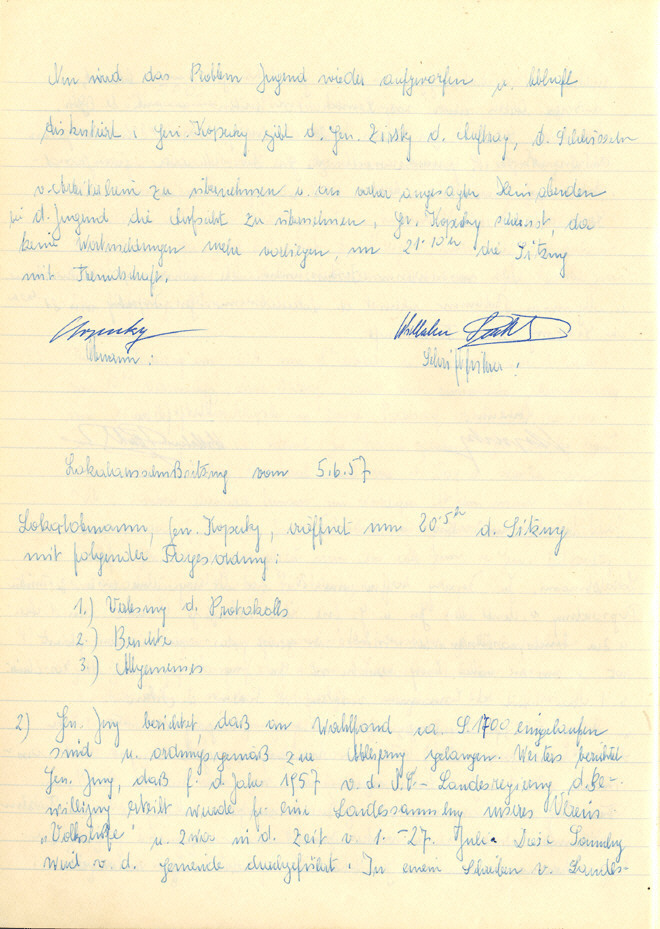 Nun wird das Problem Jugend wieder aufgeworfen u. lebhaft
diskutiert. Gen. Kopecky gibt d. Gen. Zirsky d. Auftrag, d.
v. Arbeiterheim zu übernehmen u. an vorher angesagten Heimabenden
bei d. Jugend die Aufsicht zu übernehmen. Gen. Kopecky schliesst, da
keine Wortmeldungen mehr vorliegen, um 21.10h die Sitzung
mit Freundschaft.
Kopecky Wilhelm
Obmann: Schriftführer:
Lokalausschußsitzung vom 5.6.57
Lokalobmann, Gen. Kopecky, eröffnet um 20.5h d. Sitzung
mit folgender Tagesordnung:
1.) Verlesung d. Protokolls
2.) Berichte
3.) Allgemeines
2) Gen. Jung berichtet, daß an Wahlfond ca. S. 1700 eingelaufen
sind u. ordnungsgemäß zur Ablieferung gelangen. Weiters berichtet
Gen. Jung, daß f. d. Jahr 1957 v. d. N.Ö.- Landesregierung d. Be-
willigung erteilt wurde für eine Landessammlung unseres Vereins
"Volkshilfe" u. zwar in d. Zeit v. 1.-27. Juli. Diese Sammlung
wird v. d. Gemeinde durchgeführt. In einem Schreiben v. Landes-